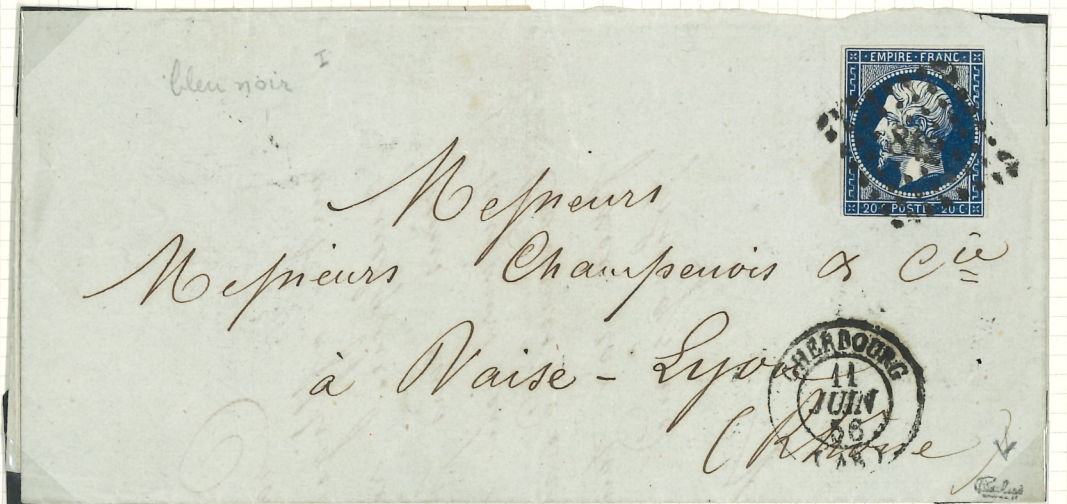 bleu noir I
EMPIRE · FRANC ·
20 C POSTE 20 C
Messieurs
Messieurs Champenois & Cie
à Vaise - Lyon
(Rhône
CHERBOURG
11
JUIN
56